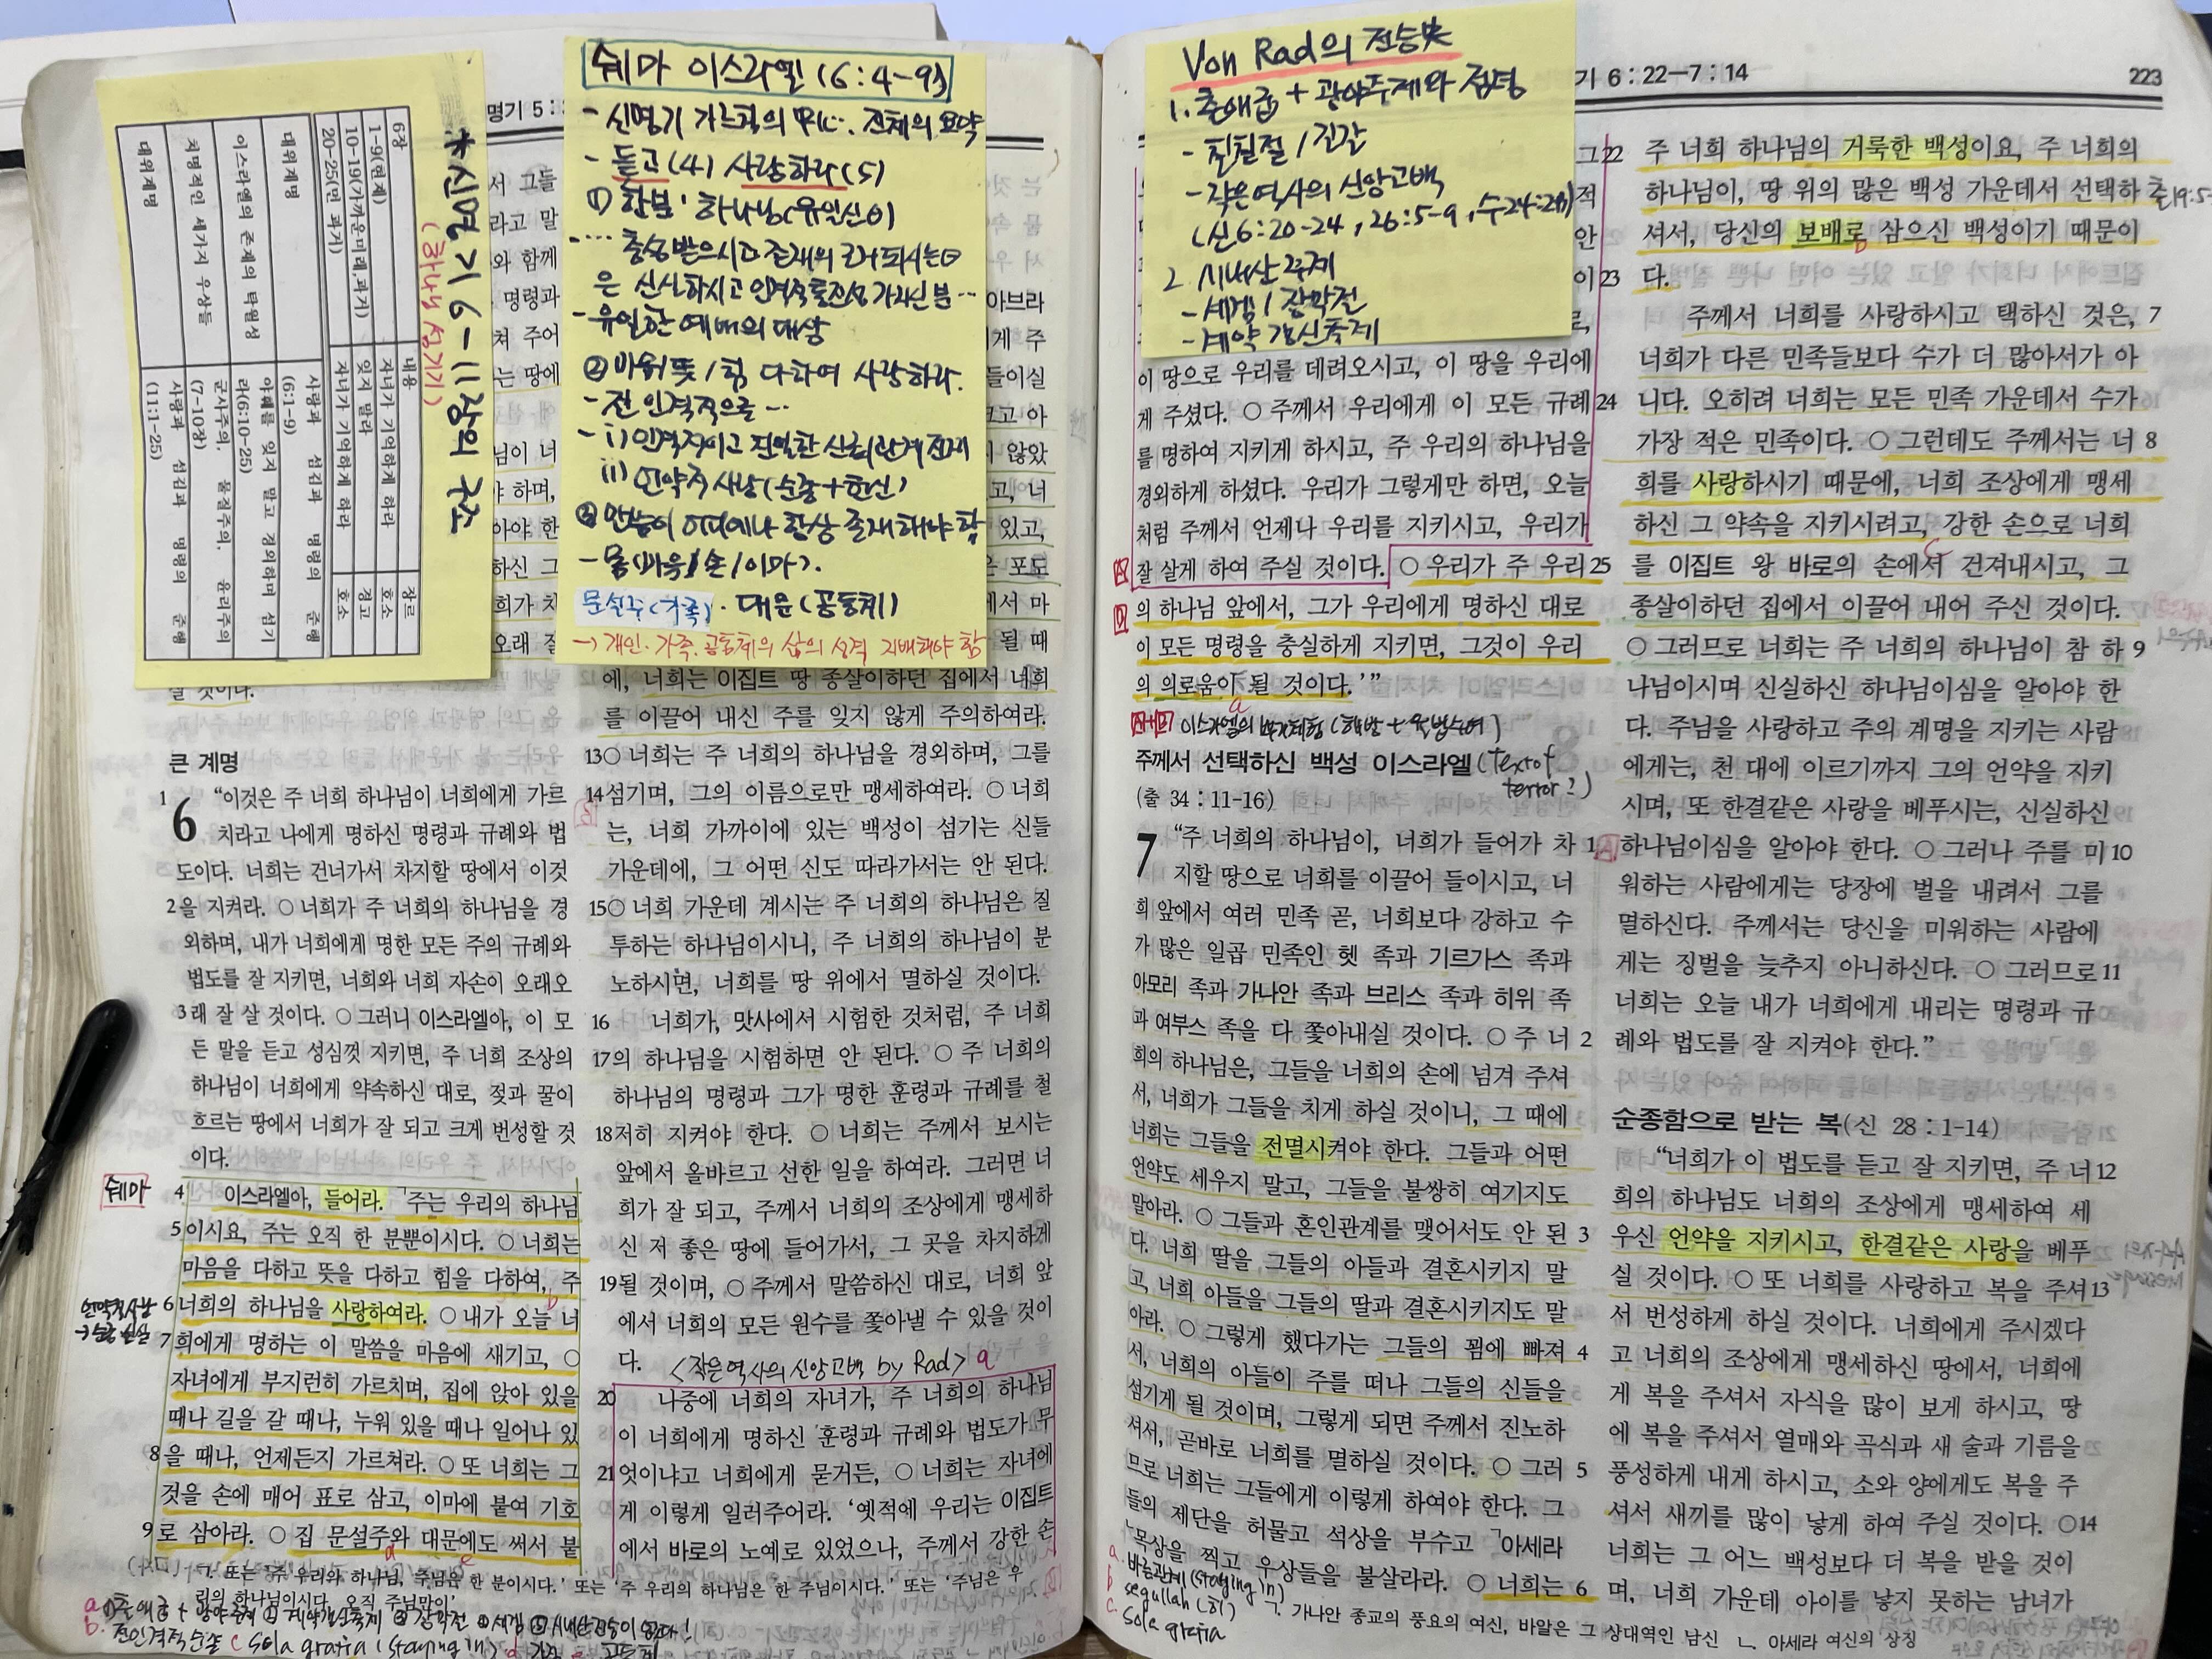 *신명기 6-11장의 구조
(하나님 섬기기)
6장 내용 장르
1-9(현재) 자녀가 기억하게 하라 호소
10-19(가까운미래,과거) 잊지 말라 경고
20-25(먼 과거) 자녀가 기억하게 하라 호소
대위계명 사랑과 섬김과 명령의 준행 (6:1-9)
이스라엘의 존재의 탁월성 야웨를 잊지 말고 경외하며 섬기라(6:10-25)
치명적인 세가지 우상들 군사주의, 물질주의, 윤리주의 (7-10장)
대위계명 사랑과 섬김과 명령의 준행 (11:1-25)
쉐마 이스라엘 (6:4-9)
- 신명기 가르침의 핵심. 전체의 요약
- 듣고(4) 사랑하라(5)
① 한분 하나님(유일신)
은 신실하시고 인격적
- 유일한 예배의 대상
② 마음/뜻/힘 다하여 사랑하라.
- 전인격적으로…
- i) 인격적이고 친밀한 신뢰관계 전제
ii) 언약적 사랑(순종+헌신)
③ 말씀이 어디에나 항상 존재해야 함
- 몸(마음/손/이마).
문설주(가족). 대문(공동체)
→ 개인·가족·공동체의 삶의 성격 지배해야 함
Von Rad의 전승史
1. 출애굽 + 광야주제와 점령
- 칠칠절 / 길갈
- 작은역사의 신앙고백
(신6:20-24, 26:5-9, 수24:
2. 시내산 주제
- 세겜 / 장막절
- 계약갱신축제
명기 5:
될 때
에, 너희는 이집트 땅 종살이하던 집에서 너희
를 이끌어 내신 주를 잊지 않게 주의하여라.
13○ 너희는 주 너희의 하나님을 경외하며, 그를
14섬기며, 그의 이름으로만 맹세하여라. ○ 너희
는, 너희 가까이에 있는 백성이 섬기는 신들
가운데에, 그 어떤 신도 따라가서는 안 된다.
15○ 너희 가운데 계시는 주 너희의 하나님은 질
투하는 하나님이시니, 주 너희의 하나님이 분
노하시면, 너희를 땅 위에서 멸하실 것이다.
16 너희가, 맛사에서 시험한 것처럼, 주 너희
17의 하나님을 시험하면 안 된다. ○ 주 너희의
하나님의 명령과 그가 명한 훈령과 규례를 철
18저히 지켜야 한다. ○ 너희는 주께서 보시는
앞에서 올바르고 선한 일을 하여라. 그러면 너
희가 잘 되고, 주께서 너희의 조상에게 맹세하
신 저 좋은 땅에 들어가서, 그 곳을 차지하게
19될 것이며, ○ 주께서 말씀하신 대로, 너희 앞
에서 너희의 모든 원수를 쫓아낼 수 있을 것이
다. <작은역사의 신앙고백 by Rad> a
20 나중에 너희의 자녀가, 주 너희의 하나님
이 너희에게 명하신 훈령과 규례와 법도가 무
21엇이냐고 너희에게 묻거든, ○ 너희는 자녀에
게 이렇게 일러주어라. '옛적에 우리는 이집트
에서 바로의 노예로 있었으나, 주께서 강한 손
큰 계명
1 6 “이것은 주 너희 하나님이 너희에게 가르
치라고 나에게 명하신 명령과 규례와 법
도이다. 너희는 건너가서 차지할 땅에서 이것
2을 지켜라. ○ 너희가 주 너희의 하나님을 경
외하며, 내가 너희에게 명한 모든 주의 규례와
법도를 잘 지키면, 너희와 너희 자손이 오래오
3래 잘 살 것이다. ○ 그러니 이스라엘아, 이 모
든 말을 듣고 성심껏 지키면, 주 너희 조상의
하나님이 너희에게 약속하신 대로, 젖과 꿀이
흐르는 땅에서 너희가 잘 되고 크게 번성할 것
이다.
쉐마
4 이스라엘아, 들어라. ㄱ주는 우리의 하나님
5이시요, 주는 오직 한 분뿐이시다. ○ 너희는
마음을 다하고 뜻을 다하고 힘을 다하여, 주
6너희의 하나님을 사랑하여라. ○ 내가 오늘 너
7희에게 명하는 이 말씀을 마음에 새기고, ○
자녀에게 부지런히 가르치며, 집에 앉아 있을
때나 길을 갈 때나, 누워 있을 때나 일어나 있
8을 때나, 언제든지 가르쳐라. ○ 또 너희는 그
것을 손에 매어 표로 삼고, 이마에 붙여 기호
9로 삼아라. ○ 집 문설주와 대문에도 써서 붙
ㄱ. 또는 '주 우리의 하나님, 주님은 한 분이시다.' 또는 '주 우리의 하나님은 한 주님이시다.' 또는 '주님은 우
리의 하나님이시다. 오직 주님만이'
b. 전인격적 순종 c. Sola gratia (staying in)
기 6 : 22—7 : 14
223
이 땅으로 우리를 데려오시고, 이 땅을 우리에
게 주셨다. ○ 주께서 우리에게 이 모든 규례 24
를 명하여 지키게 하시고, 주 우리의 하나님을
경외하게 하셨다. 우리가 그렇게만 하면, 오늘
처럼 주께서 언제나 우리를 지키시고, 우리가
잘 살게 하여 주실 것이다. ○ 우리가 주 우리 25
의 하나님 앞에서, 그가 우리에게 명하신 대로
이 모든 명령을 충실하게 지키면, 그것이 우리
의 의로움이 될 것이다.'”
주께서 선택하신 백성 이스라엘 (text of terror?)
(출 34 : 11-16)
7 “주 너희의 하나님이, 너희가 들어가 차 1
지할 땅으로 너희를 이끌어 들이시고, 너
희 앞에서 여러 민족 곧, 너희보다 강하고 수
가 많은 일곱 민족인 헷 족과 기르가스 족과
아모리 족과 가나안 족과 브리스 족과 히위 족
과 여부스 족을 다 쫓아내실 것이다. ○ 주 너 2
희의 하나님은, 그들을 너희의 손에 넘겨 주셔
서, 너희가 그들을 치게 하실 것이니, 그 때에
너희는 그들을 전멸시켜야 한다. 그들과 어떤
언약도 세우지 말고, 그들을 불쌍히 여기지도
말아라. ○ 그들과 혼인관계를 맺어서도 안 된 3
다. 너희 딸을 그들의 아들과 결혼시키지 말
고, 너희 아들을 그들의 딸과 결혼시키지도 말
아라. ○ 그렇게 했다가는 그들의 꾐에 빠져 4
서, 너희의 아들이 주를 떠나 그들의 신들을
섬기게 될 것이며, 그렇게 되면 주께서 진노하
셔서, 곧바로 너희를 멸하실 것이다. ○ 그러 5
므로 너희는 그들에게 이렇게 하여야 한다. 그
들의 제단을 허물고 석상을 부수고 ㄱ아세라
ㄴ목상을 찍고 우상들을 불살라라. ○ 너희는 6
a. 바른관계(staying in)
b. segullah (히)
c. Sola gratia
ㄱ. 가나안 종교의 풍요의 여신, 바알은 그 상대역인 남신 ㄴ. 아세라 여신의 상징
22 주 너희 하나님의 거룩한 백성이요, 주 너희의
하나님이, 땅 위의 많은 백성 가운데서 선택하
셔서, 당신의 보배로 삼으신 백성이기 때문이
23 다.
주께서 너희를 사랑하시고 택하신 것은, 7
너희가 다른 민족들보다 수가 더 많아서가 아
니다. 오히려 너희는 모든 민족 가운데서 수가
가장 적은 민족이다. ○ 그런데도 주께서는 너 8
희를 사랑하시기 때문에, 너희 조상에게 맹세
하신 그 약속을 지키시려고, 강한 손으로 너희
를 이집트 왕 바로의 손에서 건져내시고, 그
종살이하던 집에서 이끌어 내어 주신 것이다.
○ 그러므로 너희는 주 너희의 하나님이 참 하 9
나님이시며 신실하신 하나님이심을 알아야 한
다. 주님을 사랑하고 주의 계명을 지키는 사람
에게는, 천 대에 이르기까지 그의 언약을 지키
시며, 또 한결같은 사랑을 베푸시는, 신실하신
하나님이심을 알아야 한다. ○ 그러나 주를 미 10
워하는 사람에게는 당장에 벌을 내려서 그를
멸하신다. 주께서는 당신을 미워하는 사람에
게는 징벌을 늦추지 아니하신다. ○ 그러므로 11
너희는 오늘 내가 너희에게 내리는 명령과 규
례와 법도를 잘 지켜야 한다.”
순종함으로 받는 복(신 28 : 1-14)
“너희가 이 법도를 듣고 잘 지키면, 주 너 12
희의 하나님도 너희의 조상에게 맹세하여 세
우신 언약을 지키시고, 한결같은 사랑을 베푸
실 것이다. ○ 또 너희를 사랑하고 복을 주셔 13
서 번성하게 하실 것이다. 너희에게 주시겠다
고 너희의 조상에게 맹세하신 땅에서, 너희에
게 복을 주셔서 자식을 많이 보게 하시고, 땅
에 복을 주셔서 열매와 곡식과 새 술과 기름을
풍성하게 내게 하시고, 소와 양에게도 복을 주
셔서 새끼를 많이 낳게 하여 주실 것이다. ○14
너희는 그 어느 백성보다 더 복을 받을 것이
며, 너희 가운데 아이를 낳지 못하는 남녀가